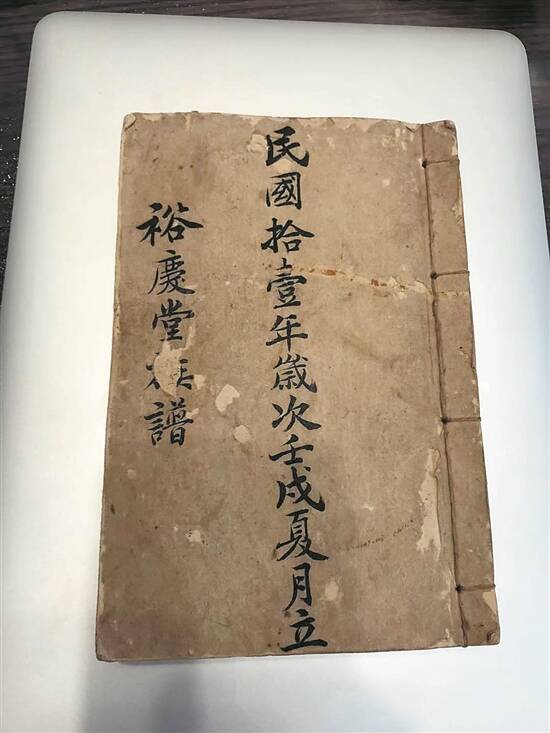 民國拾壹年歲次壬戌夏月立
裕慶堂族譜